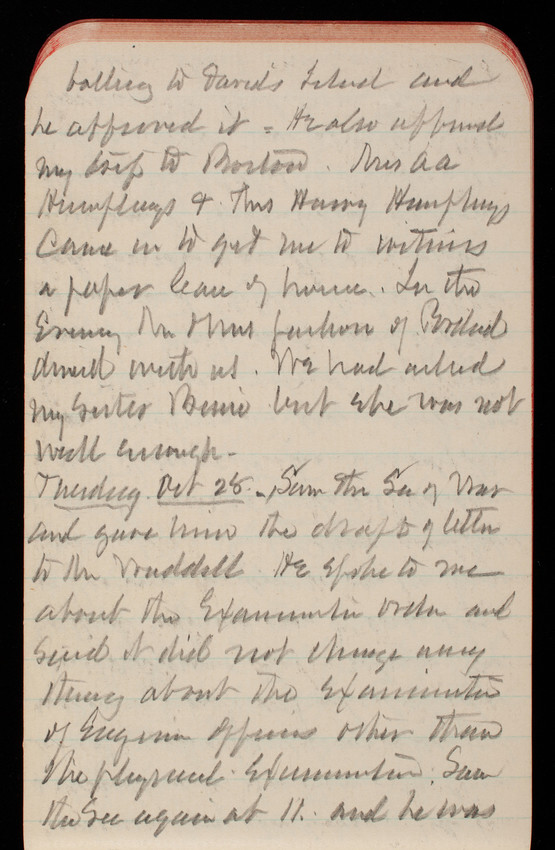 to David's Island and
he approved it - He also approved
my trip to Boston. Mrs A A
Humphreys & Miss Humphreys
came in to get me to witness
a paper lease of house. In the
Evening Mr & Mrs Jackson of
dined with us. We had asked
my sister but she was not
well enough -
Tuesday Oct 28 -, Saw the Sec of War
and gave him the draft of letter
to Mr Waddell He spoke to me
about the Examination order and
said it did not change any
thing about the Examination
of Engineer officers other than
the physical Examination. Saw
the Sec again at 11. and he was